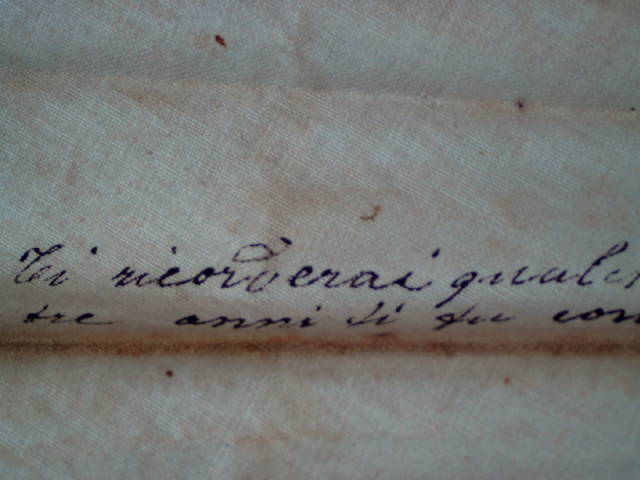 Ti ricorderai qualch
tre anni di tu con